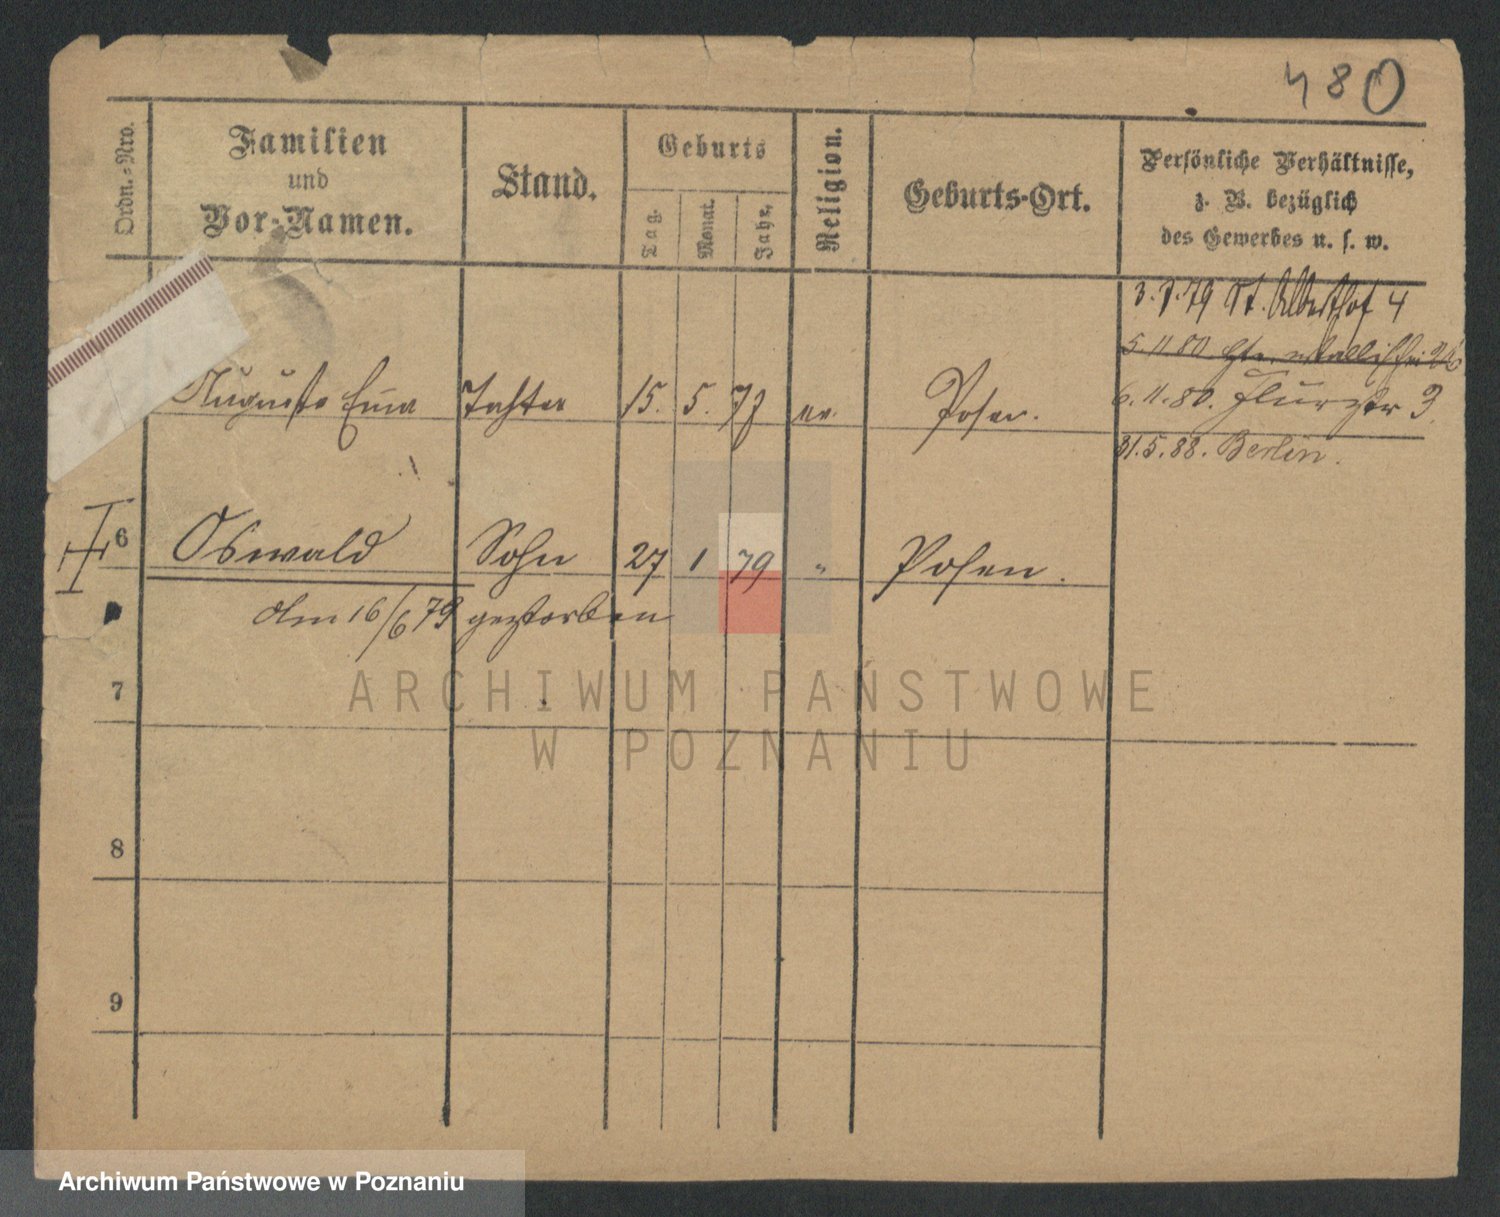 480
Ordn.-Nro.
Familien
und
Vor-Namen.
Stand.
Geburts
Tag.
Monat.
Jahr.
Religion.
Geburts-Ort.
Persönliche Verhältnisse,
z. B. bezüglich
des Gewerbes u. s. w.
3. 79 St. 4
5.11.80
6.11.80. 3.
Auguste Tochter 15. 5. 77 ev. Posen.
31.5.88. Berlin.
6 Oswald Sohn 27 1 79 " Posen.
Am 16/6 79 gestorben
7
8
9
ARCHIWUM PAŃSTWOWE
W POZNANIU
Archiwum Państwowe w Poznaniu